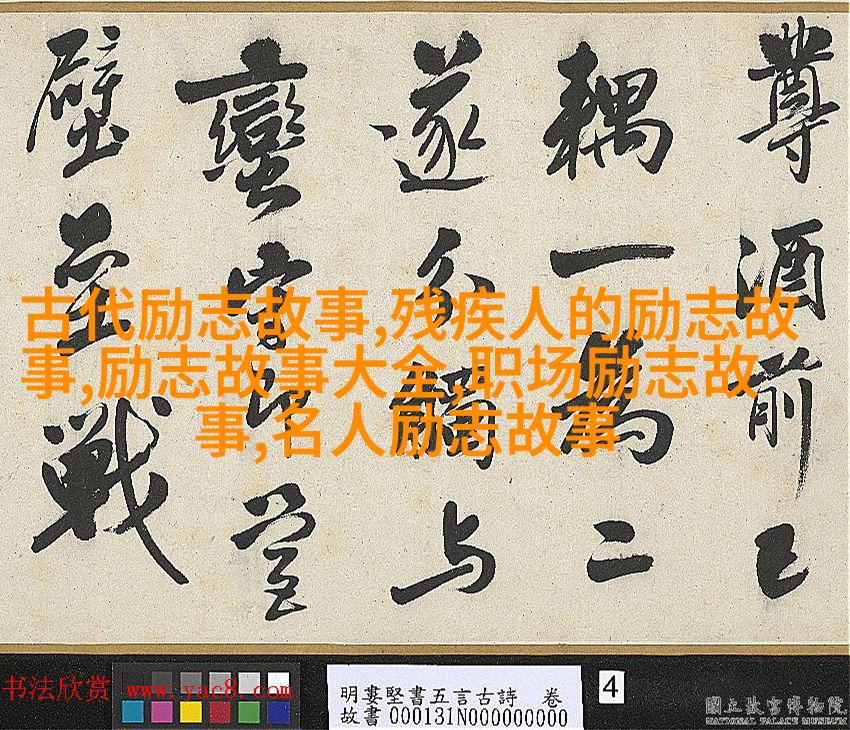 尊酒前已
耦一萬二
遂分与
蠻
壁壘戰
古代励志故事,残疾人的励志故
事,励志故事大全,职场励志故
事,名人励志故事
书法欣赏 www.yac8.com
明婁堅書五言古詩 卷
故書 000131N000000000
4
國立故宮博物院
NATIONAL PALACE MUSEUM